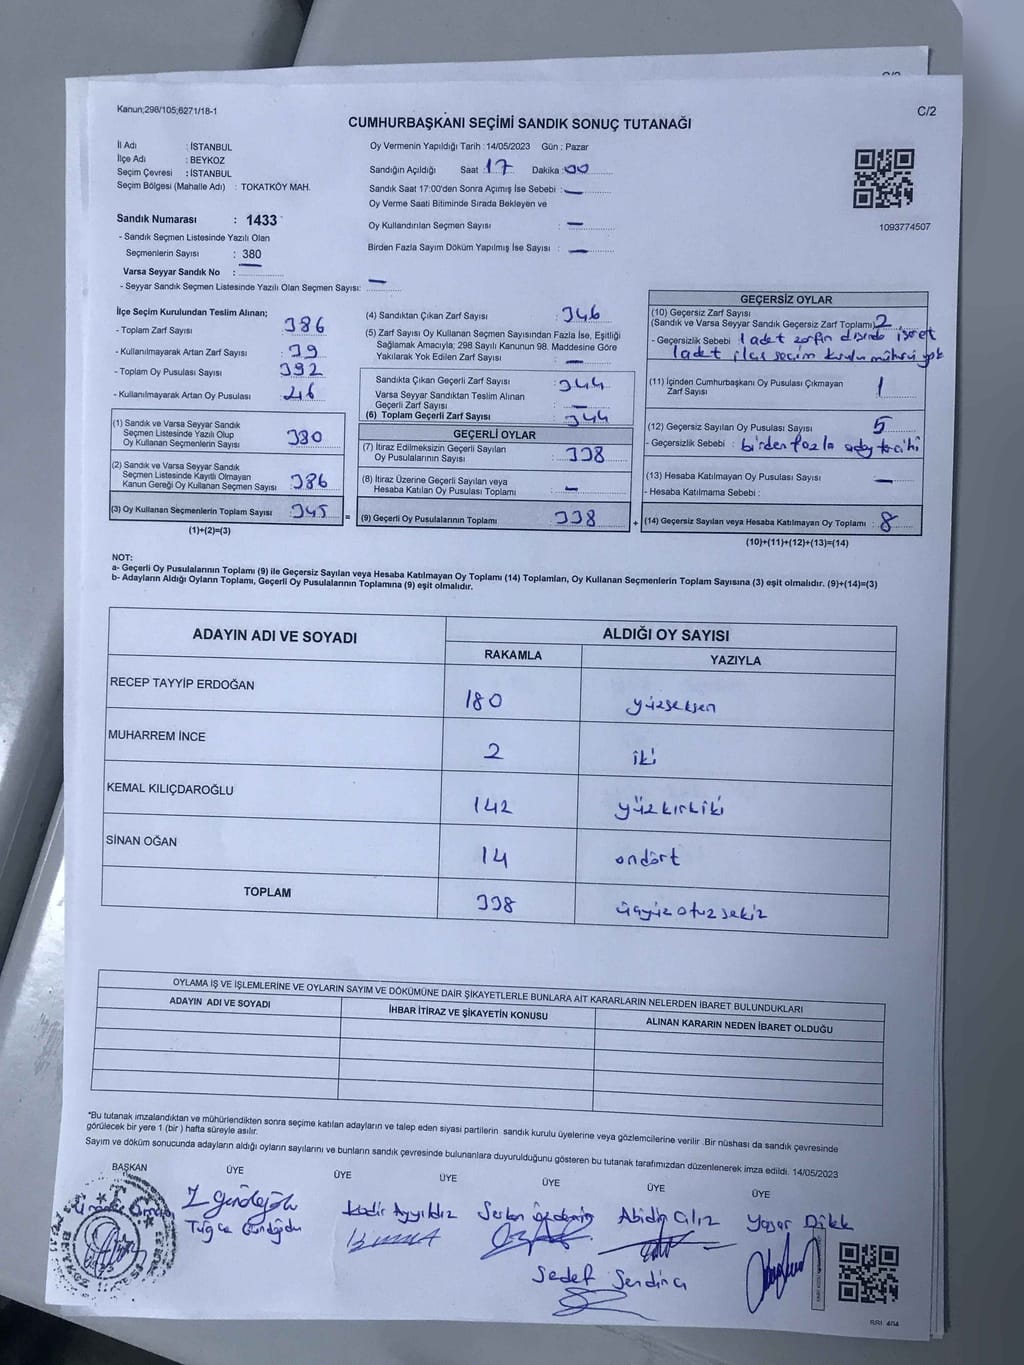 Kanun;298/105;6271/18-1
C/2
CUMHURBAŞKANI SEÇİMİ SANDIK SONUÇ TUTANAĞI
İl Adı : İSTANBUL
İlçe Adı : BEYKOZ
Seçim Çevresi : İSTANBUL
Seçim Bölgesi (Mahalle Adı) : TOKATKÖY MAH.
Oy Vermenin Yapıldığı Tarih : 14/05/2023 Gün : Pazar
Sandığın Açıldığı Saat : 17 Dakika : 00
Sandık Saat 17:00'den Sonra Açımış İse Sebebi : —
Oy Verme Saati Bitiminde Sırada Bekleyen ve
Oy Kullandırılan Seçmen Sayısı : —
Birden Fazla Sayım Döküm Yapılmış İse Sayısı : —
1093774507
Sandık Numarası : 1433
- Sandık Seçmen Listesinde Yazılı Olan
Seçmenlerin Sayısı : 380
Varsa Seyyar Sandık No : —
- Seyyar Sandık Seçmen Listesinde Yazılı Olan Seçmen Sayısı: —
İlçe Seçim Kurulundan Teslim Alınan;
- Toplam Zarf Sayısı : 386
- Kullanılmayarak Artan Zarf Sayısı : 39
- Toplam Oy Pusulası Sayısı : 392
- Kullanılmayarak Artan Oy Pusulası : 46
(1) Sandık ve Varsa Seyyar Sandık
Seçmen Listesinde Yazılı Olup
Oy Kullanan Seçmenlerin Sayısı : 380
(2) Sandık ve Varsa Seyyar Sandık
Seçmen Listesinde Kayıtlı Olmayan
Kanun Gereği Oy Kullanan Seçmen Sayısı : 386
(3) Oy Kullanan Seçmenlerin Toplam Sayısı : 345 =
(1)+(2)=(3)
(4) Sandıktan Çıkan Zarf Sayısı : 346
(5) Zarf Sayısı Oy Kullanan Seçmen Sayısından Fazla İse, Eşitliği
Sağlamak Amacıyla; 298 Sayılı Kanunun 98. Maddesine Göre
Yakılarak Yok Edilen Zarf Sayısı : —
Sandıkta Çıkan Geçerli Zarf Sayısı : 344
Varsa Seyyar Sandıktan Teslim Alınan
Geçerli Zarf Sayısı : —
(6) Toplam Geçerli Zarf Sayısı : 344
GEÇERLİ OYLAR
(7) İtiraz Edilmeksizin Geçerli Sayılan
Oy Pusulalarının Sayısı : 338
(8) İtiraz Üzerine Geçerli Sayılan veya
Hesaba Katılan Oy Pusulası Toplamı : —
(9) Geçerli Oy Pusulalarının Toplamı : 338 +
GEÇERSİZ OYLAR
(10) Geçersiz Zarf Sayısı
(Sandık ve Varsa Seyyar Sandık Geçersiz Zarf Toplamı) 2
- Geçersizlik Sebebi : 1 adet zarfın dışında işaret
1 adet ilçe seçim kurulu mührü yok
(11) İçinden Cumhurbaşkanı Oy Pusulası Çıkmayan
Zarf Sayısı : 1
(12) Geçersiz Sayılan Oy Pusulası Sayısı : 5
- Geçersizlik Sebebi : birden fazla aday tercihi
(13) Hesaba Katılmayan Oy Pusulası Sayısı : —
- Hesaba Katılmama Sebebi :
(14) Geçersiz Sayılan veya Hesaba Katılmayan Oy Toplamı : 8
(10)+(11)+(12)+(13)=(14)
NOT:
a- Geçerli Oy Pusulalarının Toplamı (9) ile Geçersiz Sayılan veya Hesaba Katılmayan Oy Toplamı (14) Toplamları, Oy Kullanan Seçmenlerin Toplam Sayısına (3) eşit olmalıdır. (9)+(14)=(3)
b- Adayların Aldığı Oyların Toplamı, Geçerli Oy Pusulalarının Toplamına (9) eşit olmalıdır.
ADAYIN ADI VE SOYADI
ALDIĞI OY SAYISI
RAKAMLA YAZIYLA
RECEP TAYYİP ERDOĞAN 180 yüzseksen
MUHARREM İNCE 2 iki
KEMAL KILIÇDAROĞLU 142 yüzkırkiki
SİNAN OĞAN 14 ondört
TOPLAM 338 üçyüzotuzsekiz
OYLAMA İŞ VE İŞLEMLERİNE VE OYLARIN SAYIM VE DÖKÜMÜNE DAİR ŞİKAYETLERLE BUNLARA AİT KARARLARIN NELERDEN İBARET BULUNDUKLARI
ADAYIN ADI VE SOYADI İHBAR İTİRAZ VE ŞİKAYETİN KONUSU ALINAN KARARIN NEDEN İBARET OLDUĞU
*Bu tutanak imzalandıktan ve mühürlendikten sonra seçime katılan adayların ve talep eden siyasi partilerin sandık kurulu üyelerine veya gözlemcilerine verilir .Bir nüshası da sandık çevresinde
görülecek bir yere 1 (bir ) hafta süreyle asılır.
Sayım ve döküm sonucunda adayların aldığı oyların sayılarını ve bunların sandık çevresinde bulunanlara duyurulduğunu gösteren bu tutanak tarafımızdan düzenlenerek imza edildi. 14/05/2023
BAŞKAN ÜYE ÜYE ÜYE ÜYE ÜYE ÜYE
Tuğçe Gündoğdu
Kadir Ayyıldız
Serkan Özdemir
Abidin Çiliz
Yaşar Dikk
Sedef Sendinç